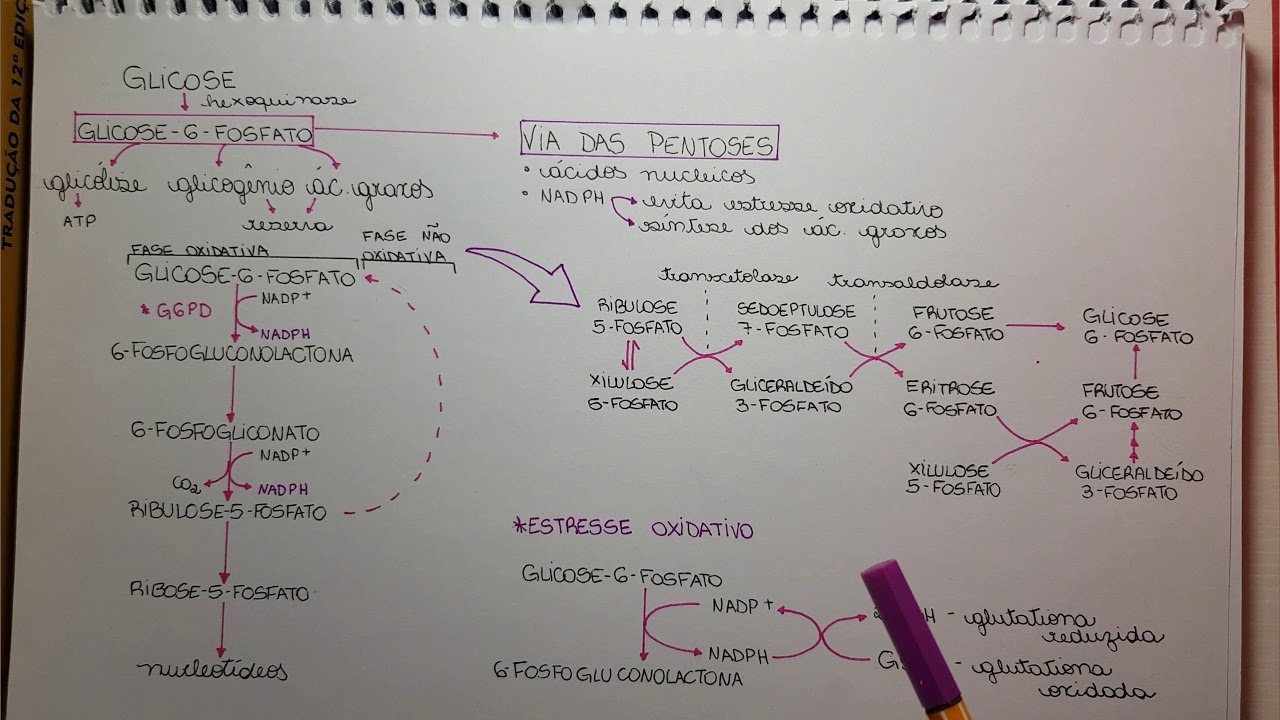 TRADUÇÃO DA 12ª EDIÇ
GLICOSE
hexoquinase
GLICOSE-6-FOSFATO
glicólise glicogênio ác. graxos
ATP
reserva
VIA DAS PENTOSES
• ácidos nucleicos
• NADPH
evita estresse oxidativo
síntese dos ác. graxos
FASE OXIDATIVA
FASE NÃO
OXIDATIVA
GLICOSE-6-FOSFATO
* G6PD
NADP+
NADPH
6-FOSFOGLUCONOLACTONA
6-FOSFOGLICONATO
NADP+
CO2
NADPH
RIBULOSE-5-FOSFATO
RIBOSE-5-FOSFATO
nucleotídeos
transcetolase
transaldolase
RIBULOSE
5-FOSFATO
SEDOEPTULOSE
7-FOSFATO
FRUTOSE
6-FOSFATO
GLICOSE
6-FOSFATO
XILULOSE
5-FOSFATO
GLICERALDEÍDO
3-FOSFATO
ERITROSE
6-FOSFATO
FRUTOSE
6-FOSFATO
XILULOSE
5-FOSFATO
GLICERALDEÍDO
3-FOSFATO
*ESTRESSE OXIDATIVO
GLICOSE-6-FOSFATO
NADP+
NADPH
6-FOSFOGLUCONOLACTONA
H - glutationa
reduzida
G - glutationa
oxidada